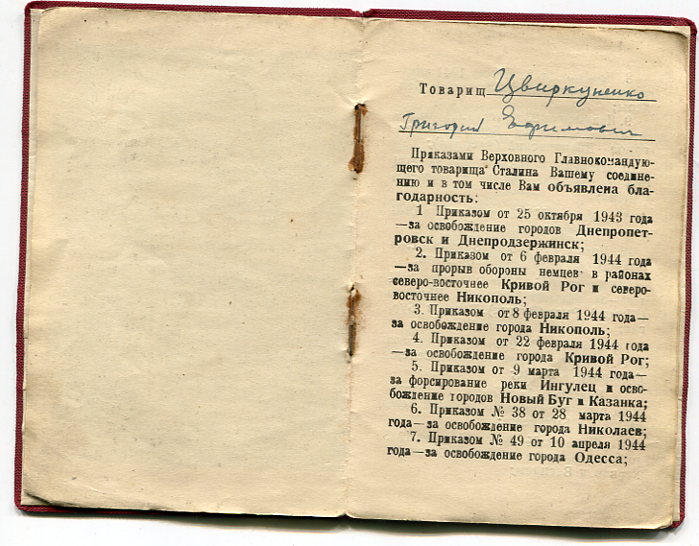 Товарищ Цвиркуненко
Григорий Ефимович
Приказами Верховного Главнокомандую-
щего товарища Сталина Вашему соедине-
нию и в том числе Вам объявлена бла-
годарность:
1 Приказом от 25 октября 1943 года
—за освобождение городов Днепропет-
ровск и Днепродзержинск;
2. Приказом от 6 февраля 1944 года
—за прорыв обороны немцев в районах
северо-восточнее Кривой Рог и северо-
восточнее Никополь;
3. Приказом от 8 февраля 1944 года—
за освобождение города Никополь;
4. Приказом от 22 февраля 1944 года
—за освобождение города Кривой Рог;
5. Приказом от 9 марта 1944 года—
за форсирование реки Ингулец и осво-
бождение городов Новый Буг и Казанка;
6. Приказом № 38 от 28 марта 1944
года—за освобождение города Николаев;
7. Приказом № 49 от 10 апреля 1944
года—за освобождение города Одесса;